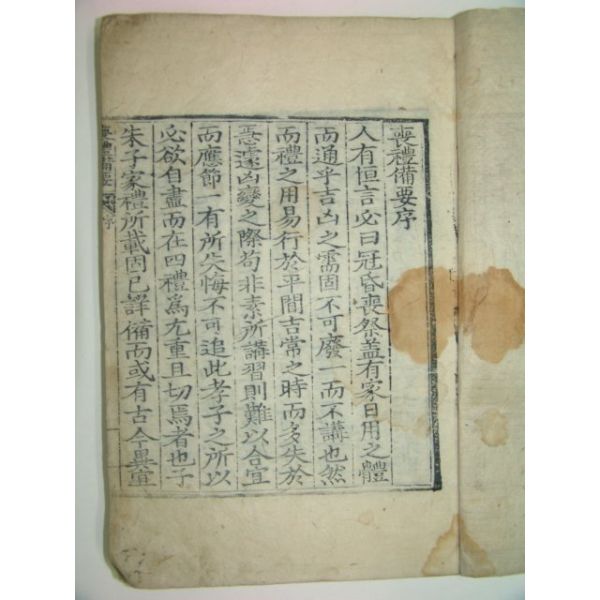 喪禮備要序
人有恒言必曰冠昏喪祭盖有家日用之體
而通乎吉凶之需固不可廢一而不講也然
而禮之用易行於平間吉常之時而多失於
急遽凶變之際苟非素所講習則難以合宜
而應節一有所失悔不可追此孝子之所以
必欲自盡而在四禮爲尤重且切焉者也子
朱子家禮所載固已詳備而或有古今異宜
喪禮備要 序